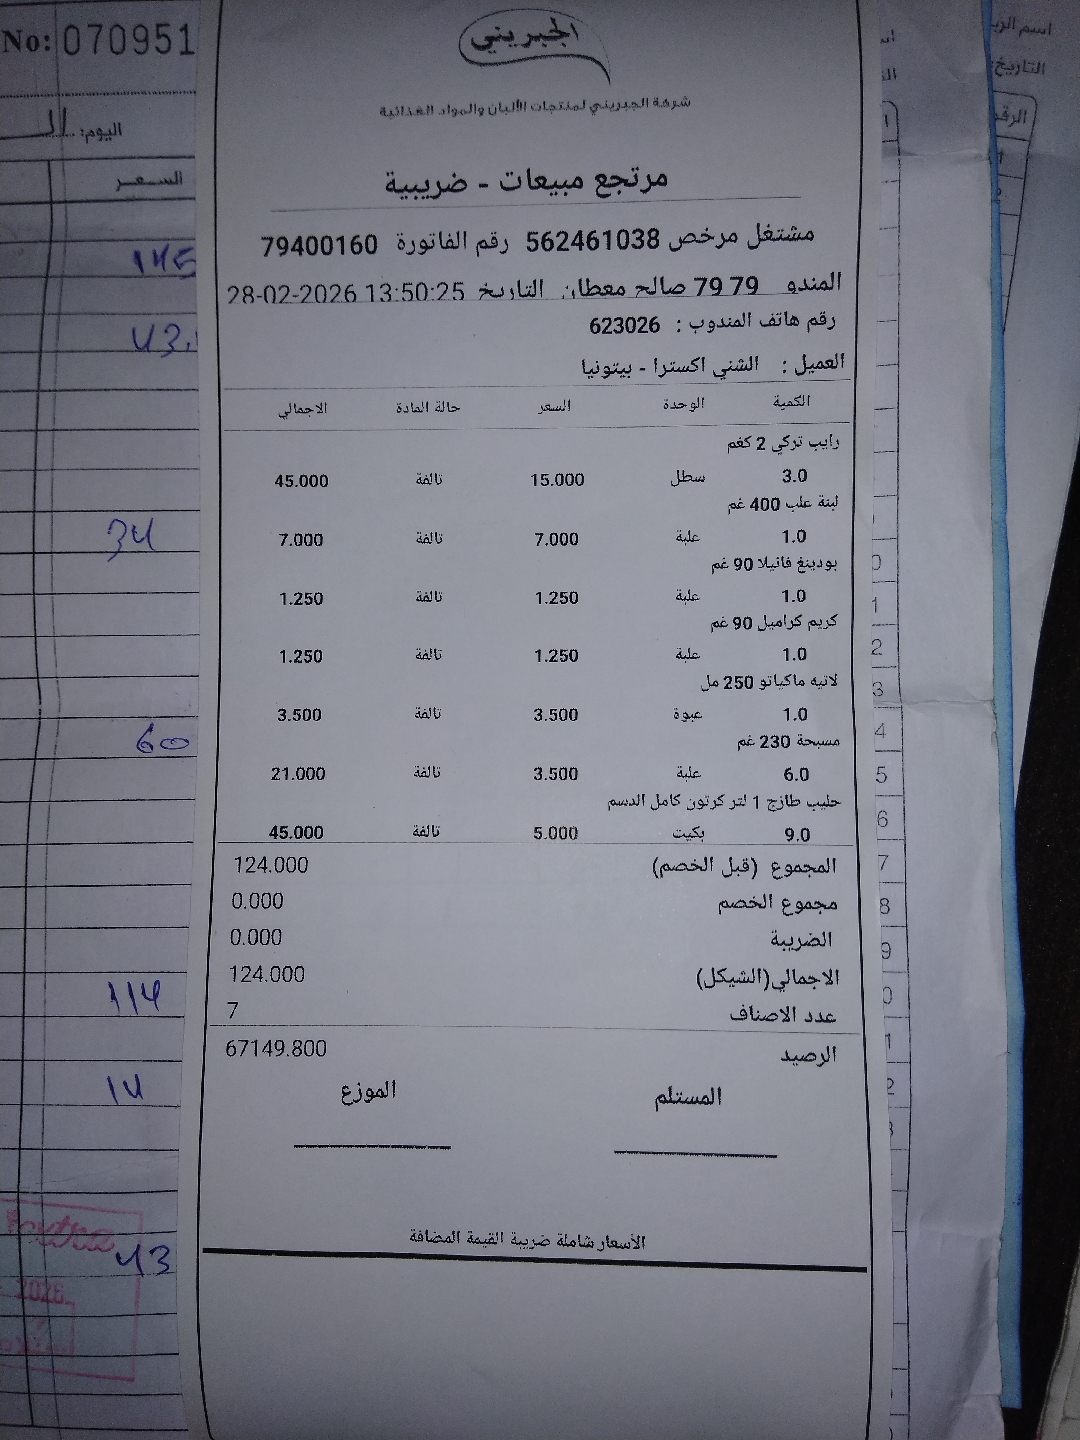 No: 070951
اليوم:
السعر
145
34
60
114
14
43
الجبريني
شركة الجبريني لمنتجات الألبان والمواد الغذائية
مرتجع مبيعات - ضريبية
مشتغل مرخص 562461038 رقم الفاتورة 79400160
المندو 79 79 صالح معطان التاريخ 28-02-2026 13:50:25
رقم هاتف المندوب : 623026
العميل : الشني اكسترا - بيتونيا
الكمية الوحدة السعر حالة المادة الاجمالي
رايب تركي 2 كغم
3.0 سطل 15.000 تالفة 45.000
لبنة علب 400 غم
1.0 علبة 7.000 تالفة 7.000
بودينغ فانيلا 90 غم
1.0 علبة 1.250 تالفة 1.250
كريم كراميل 90 غم
1.0 علبة 1.250 تالفة 1.250
لاتيه ماكياتو 250 مل
1.0 عبوة 3.500 تالفة 3.500
مسبحة 230 غم
6.0 علبة 3.500 تالفة 21.000
حليب طازج 1 لتر كرتون كامل الدسم
9.0 بكيت 5.000 تالفة 45.000
المجموع (قبل الخصم) 124.000
مجموع الخصم 0.000
الضريبة 0.000
الاجمالي(الشيكل) 124.000
عدد الاصناف 7
الرصيد 67149.800
المستلم الموزع
الأسعار شاملة ضريبة القيمة المضافة
extra
2026
التاريخ: